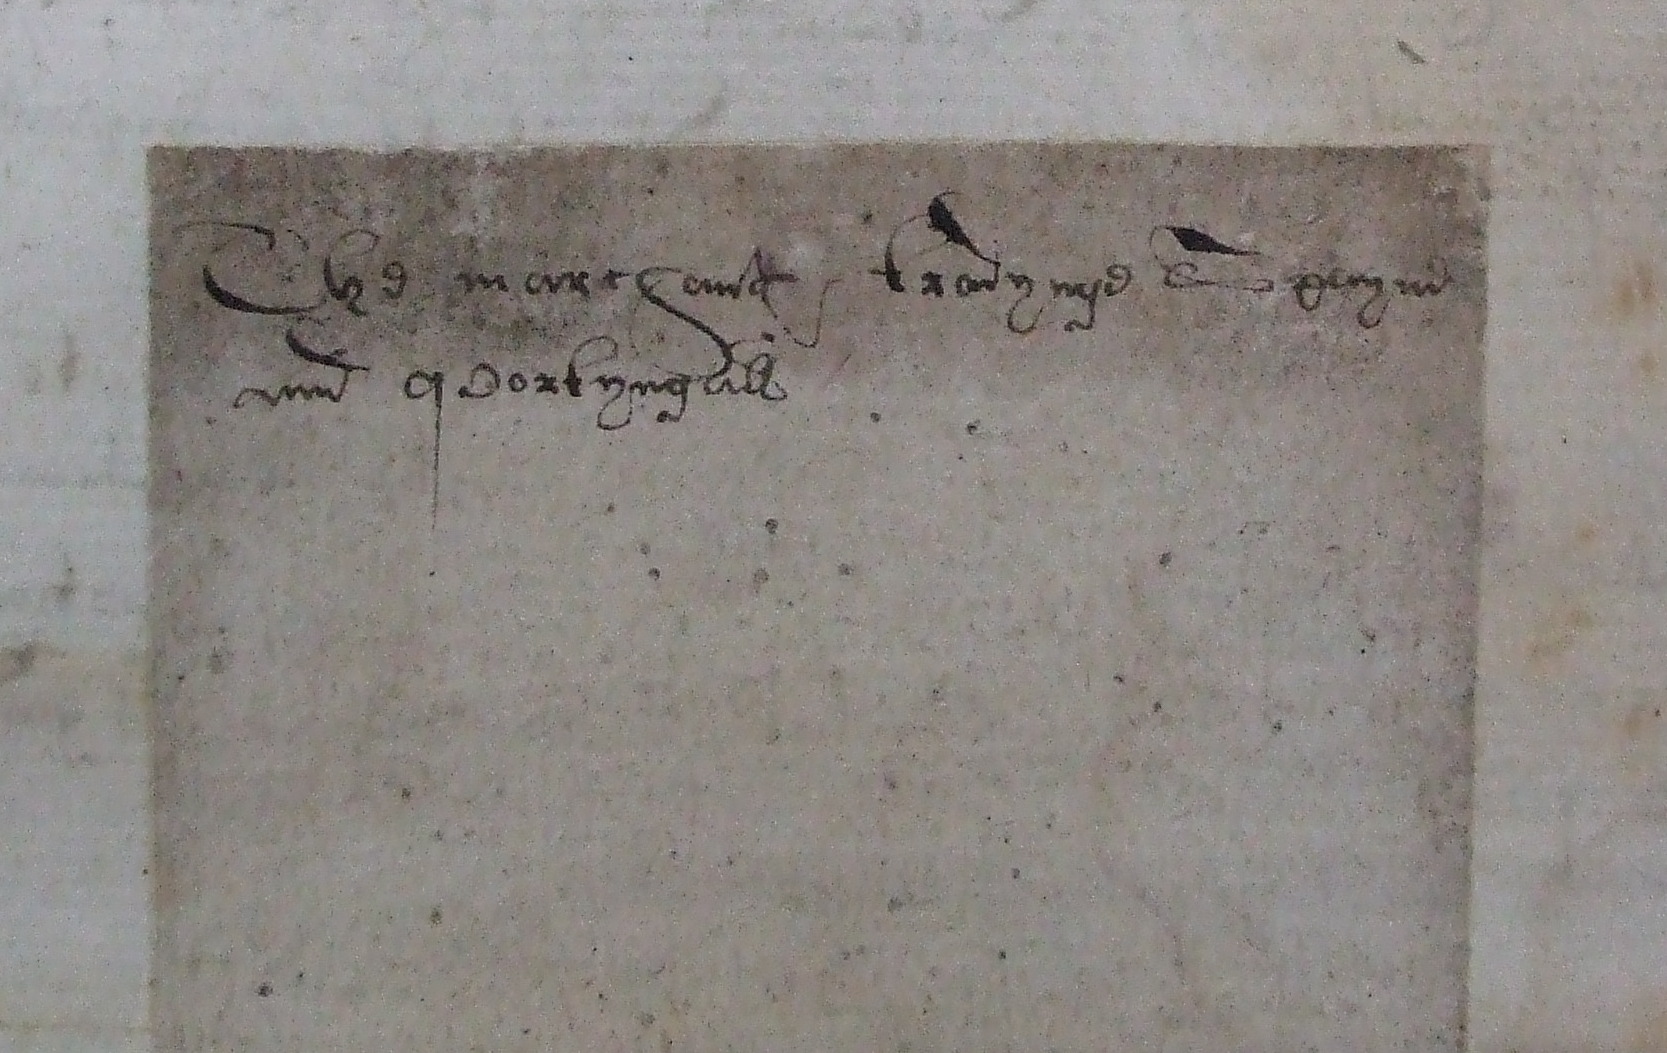 The marchant͠ tradynge Spayn
and Portyngall